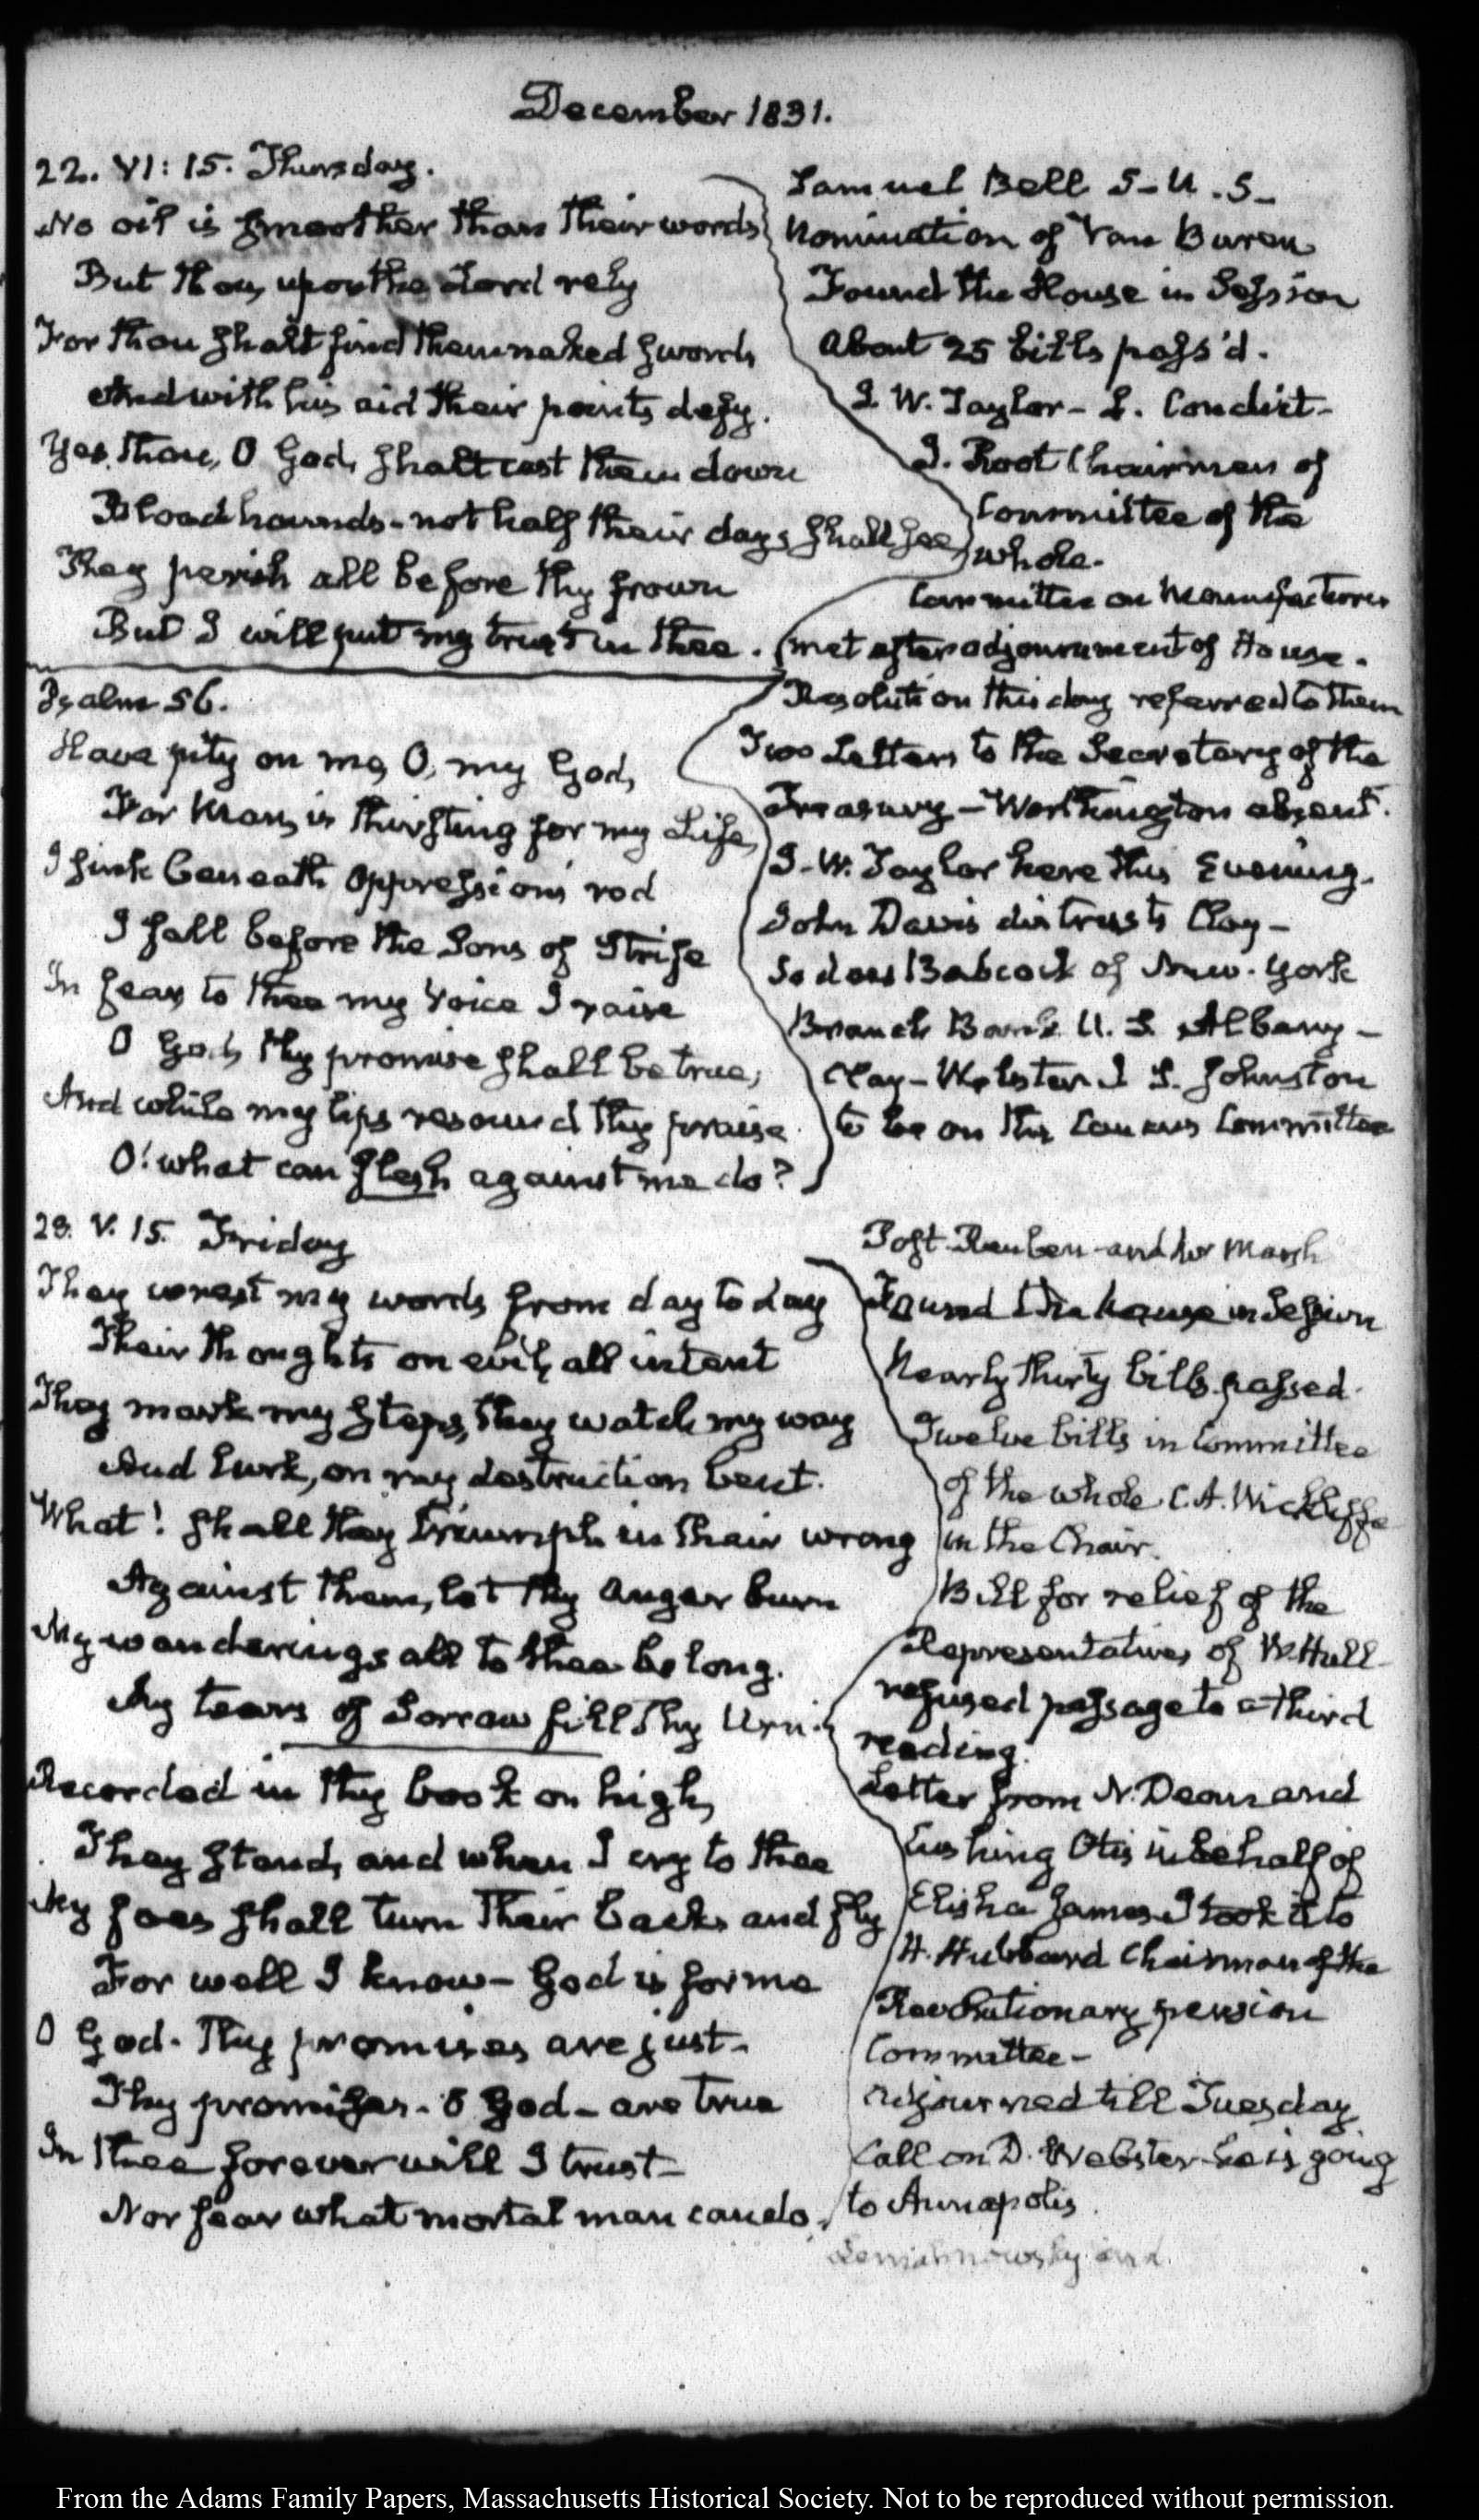 December 1831.
22. VI: 15. Thursday.
No oil is smoother than their words
But thou, upon the Lord rely
For thou shalt find them naked swords
And with his aid their points defy.
Yes, thou, O God, shalt cast them down
Bloodhounds - not half their days shall see,
They perish all before thy frown
But I will put my trust in thee.
Samuel Bell S. U. S.
Nomination of Van Buren
Found the House in Session
About 25 bills pass'd.
J. W. Taylor - L. Condict -
J. Root Chairman of
Committee of the
whole.
Committee on Manufactures
met after adjournment of House.
Resolution this day referred to them
Two Letters to the Secretary of the
Treasury - Worthington absent.
J. W. Taylor here this Evening.
John Davis distrusts Clay -
So does Babcock of New-York
Branch Bank U. S. Albany -
Clay - Webster J S. Johnston
to be on the Caucus Committee
Psalm 56.
Have pity on me, O, my God,
For Man, is thirsting for my Life,
I sink beneath Oppression's rod
I fall before the Sons of Strife
In fear to thee my Voice I raise
O God, thy promise shall be true,
And while my lips resound thy praise
O! what can flesh against me do?
23. V. 15. Friday
They wrest my words from day to day
Their thoughts on evil, all intent
They mark my steps, they watch my way
And lurk, on my destruction bent.
What! shall they triumph in their wrong
Against them, let thy anger burn
My wanderings all to thee belong.
My tears of Sorrow fill Thy Urn.
Recorded in thy book on high,
They stand, and when I cry to thee
My foes shall turn Their backs and fly
For well I know - God is for me
O God. Thy promises are just -
Thy promises - O God - are true
In thee forever will I trust -
Nor fear what mortal man can do.
Post. Reuben and Mr Marsh
Found the house in Session
Nearly thirty bills passed.
Twelve bills in Committee
of the whole C. A. Wickliffe
in the Chair.
Bill for relief of the
Representatives of W. Hull
refused passage to a third
reading.
Letter from N. Dean and
Cushing Otis in behalf of
Elisha James. I took it to
H. Hubbard Chairman of the
Revolutionary pension
Committee -
adjourned till Tuesday
Call on D. Webster - he is going
to Annapolis.
From the Adams Family Papers, Massachusetts Historical Society. Not to be reproduced without permission.